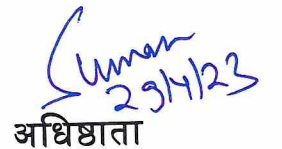 Suman
29/4/23
अधिष्ठाता